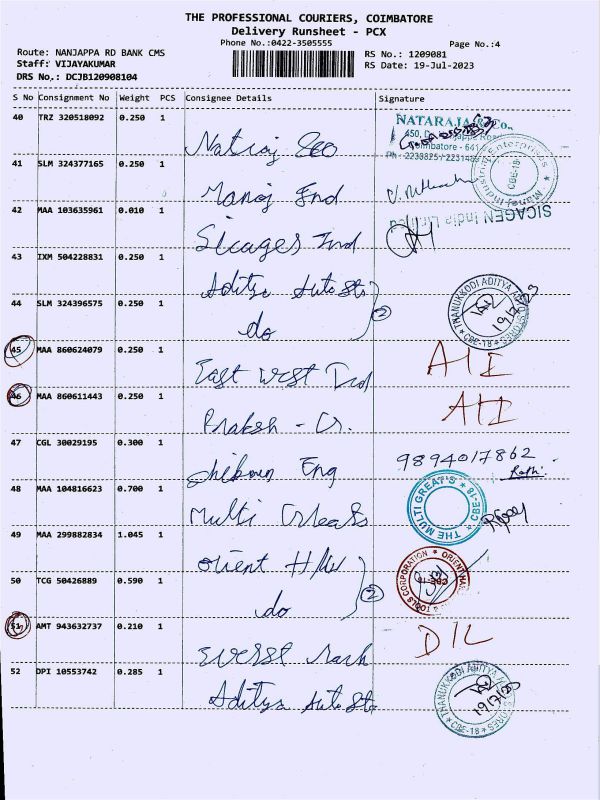 THE PROFESSIONAL COURIERS, COIMBATORE
Delivery Runsheet - PCX
Phone No.:0422-3505555
Page No.:4
Route: NANJAPPA RD BANK CMS
RS No.: 1209081
Staff: VIJAYAKUMAR
RS Date: 19-Jul-2023
DRS No.: DCJB120908104
S No Consignment No Weight PCS Consignee Details Signature
40 TRZ 320518092 0.250 1
NATARAJA & Co.,
41 SLM 324377165 0.250 1
Manoj Ind
42 MAA 103635961 0.010 1
SICAGEN India Limited
Sicages Ind
43 IXM 504228831 0.250 1
Aditya Auto Sto
44 SLM 324396575 0.250 1
do 2
THANUKKODI ADITYA AUTO STORES
CBE-18
19/7/23
45 MAA 860624079 0.250 1
East West Ind
46 MAA 860611443 0.250 1
Praksh -
47 CGL 30029195 0.300 1
Eng 9894017862
48 MAA 104816623 0.700 1
Multi Greats
THE MULTI GREAT'S
CBE-18
49 MAA 299882834 1.045 1
Orient H/W
50 TCG 50426889 0.590 1
do 2
51 AMT 943632737 0.210 1
D/L
52 DPI 10553742 0.285 1
Aditya Auto Sto
THANUKKODI ADITYA AUTO STORES
CBE-18
19/7/23